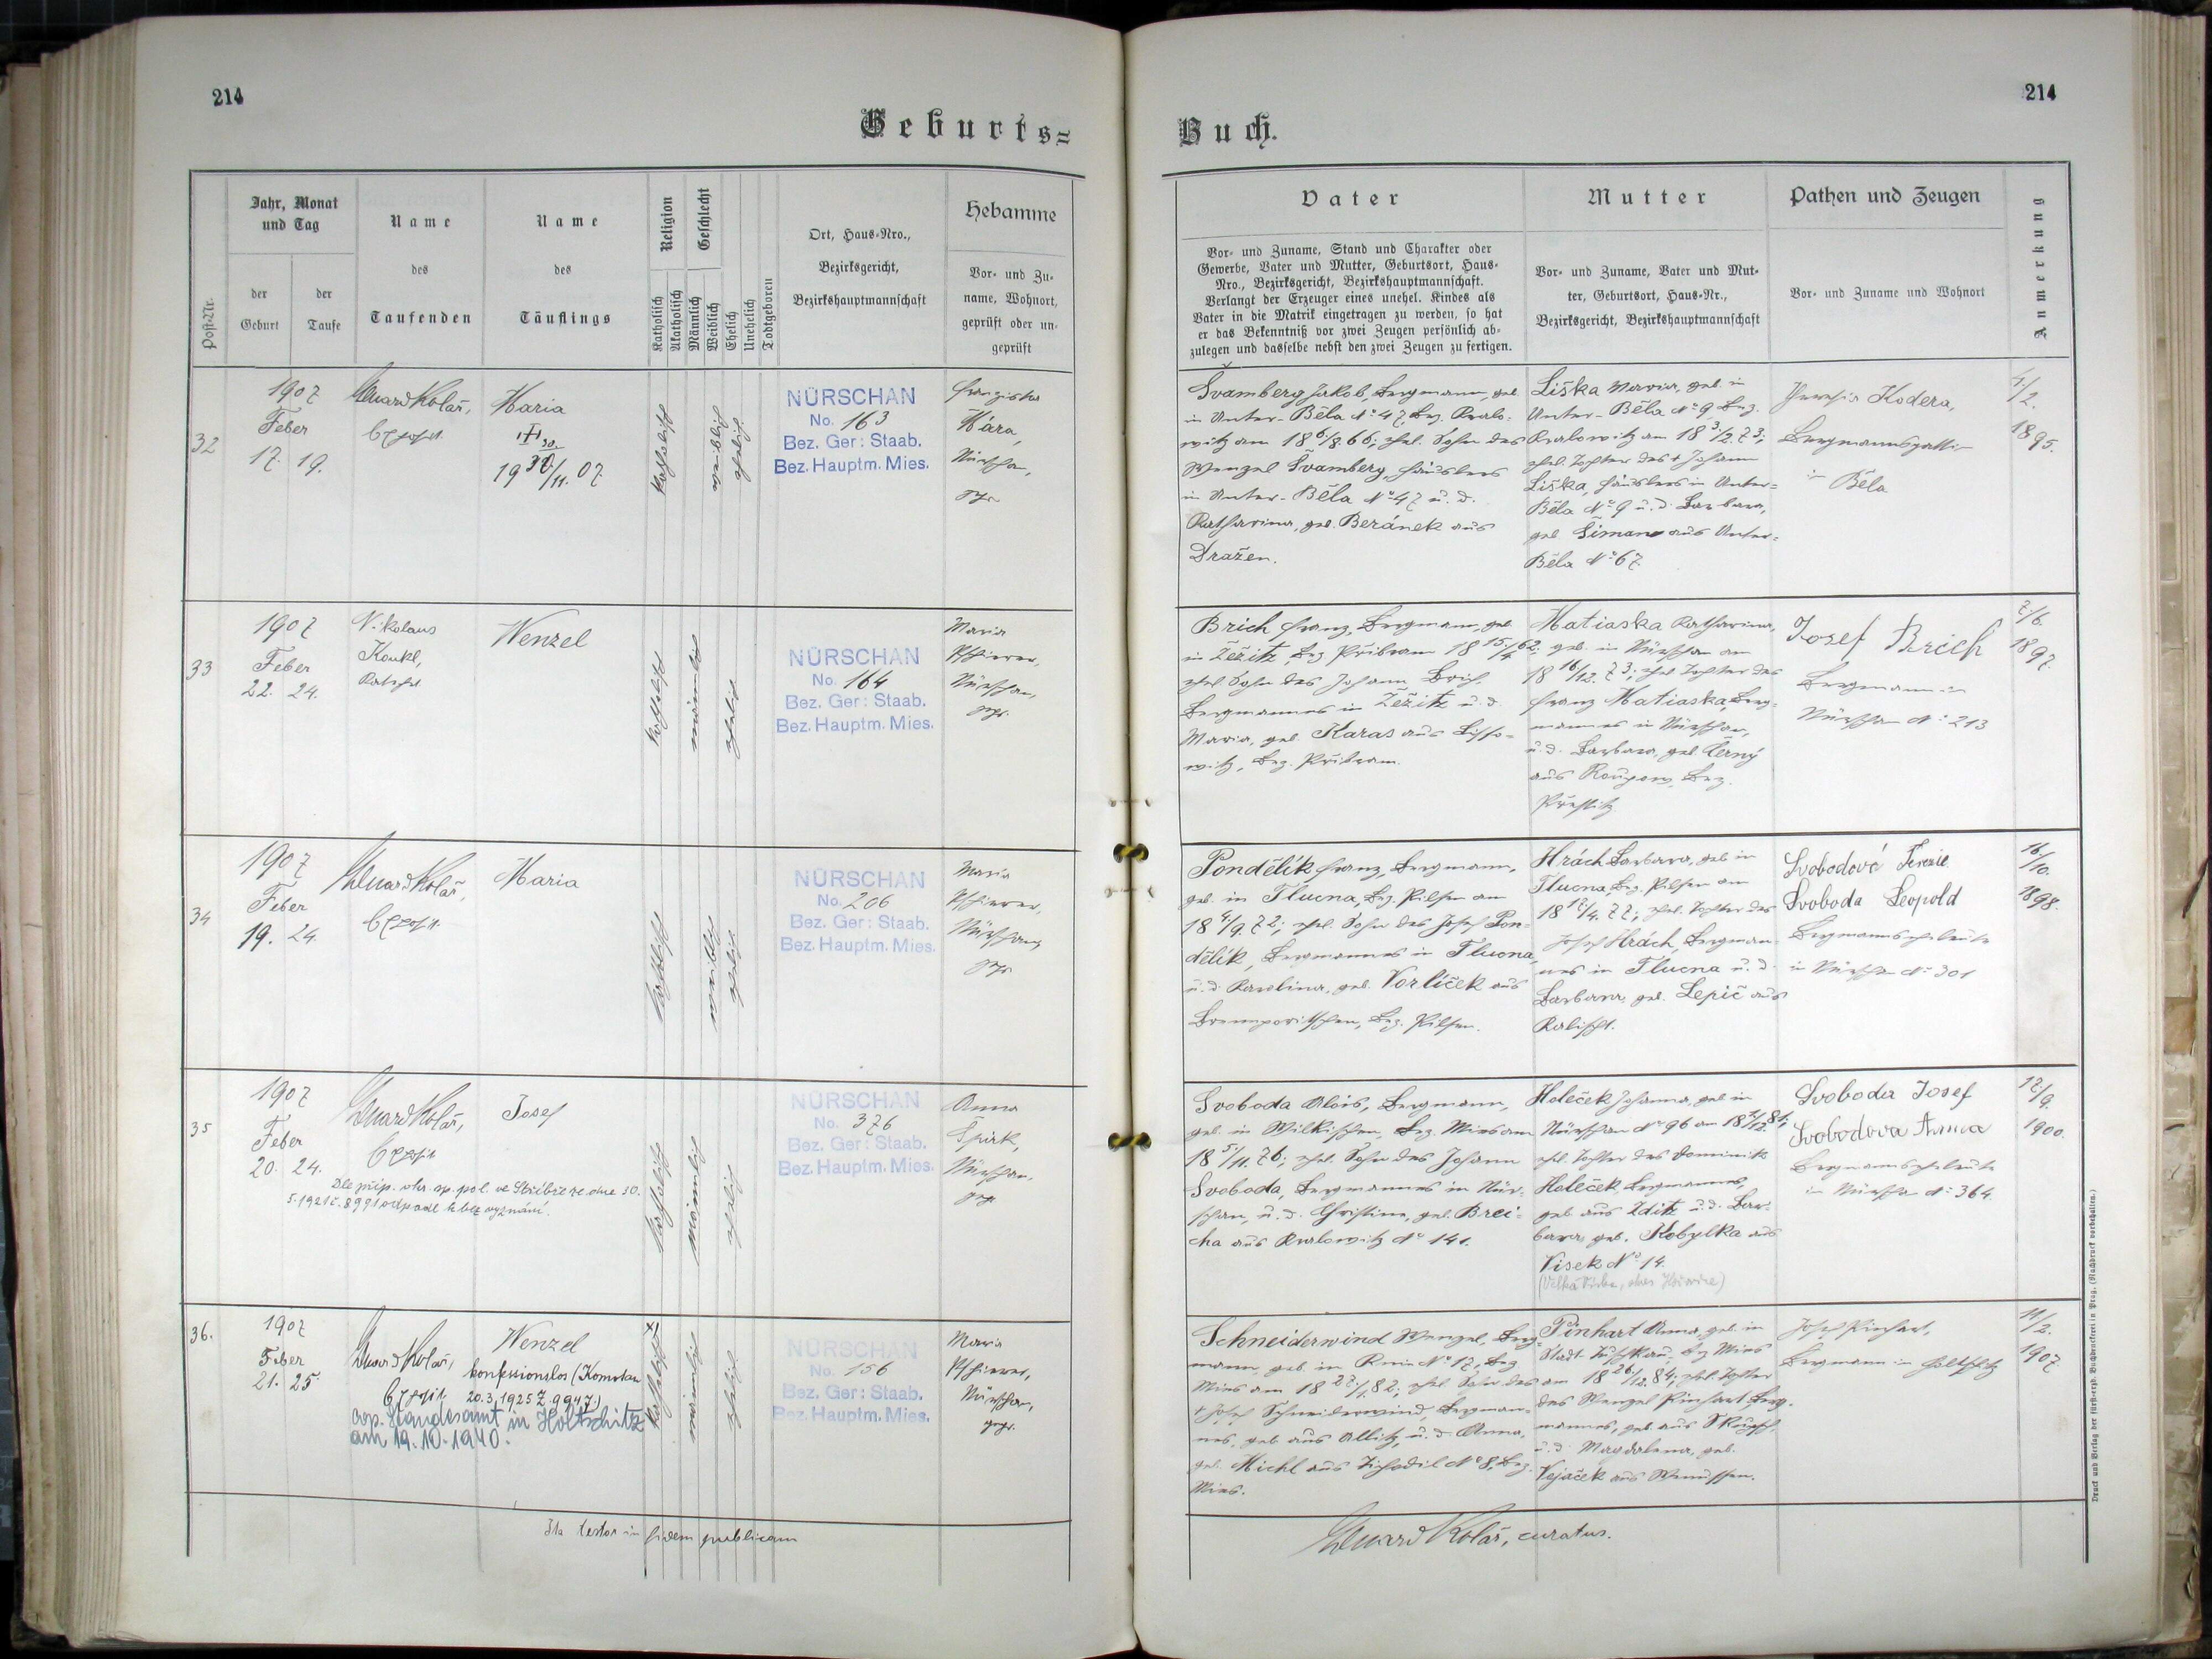 214
214
Geburts=
Buch.
Post-Nr.
Jahr, Monat
und Tag
der
Geburt
der
Taufe
Name
des
Taufenden
Name
des
Täuflings
Religion
Katholisch
Akatholisch
Geschlecht
Männlich
Weiblich
Ehelich
Unehelich
Todtgeboren
Ort, Haus-Nro.,
Bezirksgericht,
Bezirkshauptmannschaft
Hebamme
Vor- und Zu-
name, Wohnort,
geprüft oder un-
geprüft
Vater
Vor- und Zuname, Stand und Charakter oder
Gewerbe, Vater und Mutter, Geburtsort, Haus-
Nro., Bezirksgericht, Bezirkshauptmannschaft.
Verlangt der Erzeuger eines unehel. Kindes als
Vater in die Matrik eingetragen zu werden, so hat
er das Bekenntniß vor zwei Zeugen persönlich ab-
zulegen und dasselbe nebst den zwei Zeugen zu fertigen.
Mutter
Vor- und Zuname, Vater und Mut-
ter, Geburtsort, Haus-Nr.,
Bezirksgericht, Bezirkshauptmannschaft
Pathen und Zeugen
Vor- und Zuname und Wohnort
Anmerkung
32
1907
Feber
17. 19.
Eduard Kolář,
Maria
katholisch
weiblich
ehelich
NÜRSCHAN
No. 163
Bez. Ger: Staab.
Bez. Hauptm. Mies.
Franziska
Wára,
Nürschan,
Švamberg Jakob, Bergmann, geb.
in Unter-Běla No 47, Bez. Kralo-
witz am 18 6./8. 66; ehel. Sohn des
Wenzel Švamberg, Häuslers
in Unter-Běla No 47 u. d.
Katharina, geb. Beránek aus
Dražen.
Liška Maria, geb. in
Unter-Běla No 9, Bez.
Kralowitz am 18 3./2. 73;
ehel. Tochter des † Johann
Liška, Häuslers in Unter-
Běla No 9 u. d. Barbara,
geb. Šiman aus Unter-
Běla No 67.
Theresia Kodera,
Bergmannsgattin
in Běla
4./2.
1895.
33
1907
Feber
22. 24.
Nikolaus
Koukl,
Katechet
Wenzel
katholisch
männlich
ehelich
NÜRSCHAN
No. 164
Bez. Ger: Staab.
Bez. Hauptm. Mies.
Maria
Nürschan,
gepr.
Brich Franz, Bergmann, geb.
in Žežitz, Bez. Přibram 18 15./4. 62;
ehel. Sohn des Johann Brich,
Bergmannes in Žežitz u. d.
Maria, geb. Karas aus
witz, Bez. Přibram.
Matiaska Katharina,
geb. in Nürschan am
18 16./12. 73; ehel. Tochter des
Franz Matiaska, Berg-
mannes in Nürschan,
u. d. Barbara, geb. Černý
aus Roupov, Bez.
Přestitz.
Josef Brich
Bergmann in
Nürschan No 213
7./6.
1897.
34
1907
Feber
19. 24.
Eduard Kolář,
Maria
katholisch
weiblich
ehelich
NÜRSCHAN
No. 206
Bez. Ger: Staab.
Bez. Hauptm. Mies.
Maria
Nürschan,
gepr.
Pondělík Franz, Bergmann,
geb. in Tlucna, Bez. Pilsen am
18 4./9. 72; ehel. Sohn des Josef Pon-
dělík, Bergmannes in Tlucna,
u. d. Karolina, geb. Vorlíček aus
Bez. Pilsen.
Hrách Barbara, geb. in
Tlucna, Bez. Pilsen am
ehel. Tochter des
Josef Hrách, Bergman-
nes in Tlucna u. d.
Barbara, geb. Lepič aus
Svobodové Terezie
Svoboda Leopold
Bergmannseheleute
in Nürschan No 301
16./10.
1898.
35
1907
Feber
20. 24.
Eduard Kolář,
Josef
Dle příp. okr. sp. pol. ve Stříbře ze dne 30.
5. 1921 č. 8991 odpadl k bez vyznání.
katholisch
männlich
ehelich
NÜRSCHAN
No. 376
Bez. Ger: Staab.
Bez. Hauptm. Mies.
Anna
Špirk,
Nürschan,
gepr.
Svoboda Alois, Bergmann,
geb. in Wilkischen, Bez. Mies am
18 5./11. 76; ehel. Sohn des Johann
Svoboda, Bergmannes in Nür-
schan, u. d. Christine, geb. Brei-
cha aus Kralowitz No 141.
Holeček Johanna, geb. in
Nürschan No 96 am
ehel. Tochter des Dominik
Holeček, Bergmannes,
geb. aus Zditz u. d. Bar-
bara, geb. Kobylka aus
Visek No 14.
Svoboda Josef
Svobodova Anna
Bergmannseheleute
in Nürschan No 364
17./9.
1900.
36.
1907
Feber
21. 25.
Eduard Kolář,
Wenzel
konfessionslos (Komotau
20.3.1925 Z. 9947)
cop. Standesamt in Holtschitz
am 19.10.1940.
katholisch
männlich
ehelich
NÜRSCHAN
No. 156
Bez. Ger: Staab.
Bez. Hauptm. Mies.
Maria
Nürschan,
gepr.
Schneiderwind Wenzel, Berg-
mann, geb. in No 17, Bez.
Mies am 18 22./1. 82; ehel. Sohn des
† Josef Schneiderwind, Bergman-
nes, geb. aus Allitz, u. d. Anna,
geb. Michl aus Tichodil No 8, Bez.
Mies.
Pinhart Anna, geb. in
Stadt Tuschkau, Bez. Mies
am 18 26./12. 84; ehel. Tochter
des Wenzel Pinhart, Berg-
mannes, geb. aus
u. d. Magdalena, geb.
Vejaček aus Wenussen.
Josef Pinhart,
Bergmann in Holtschitz
11./2.
1907.
Ita testor in fidem publicam
Eduard Kolář, curatus.
Druck und Verlag der fürst-erzb. Buchdruckerei in Prag. (Nachdruck vorbehalten.)